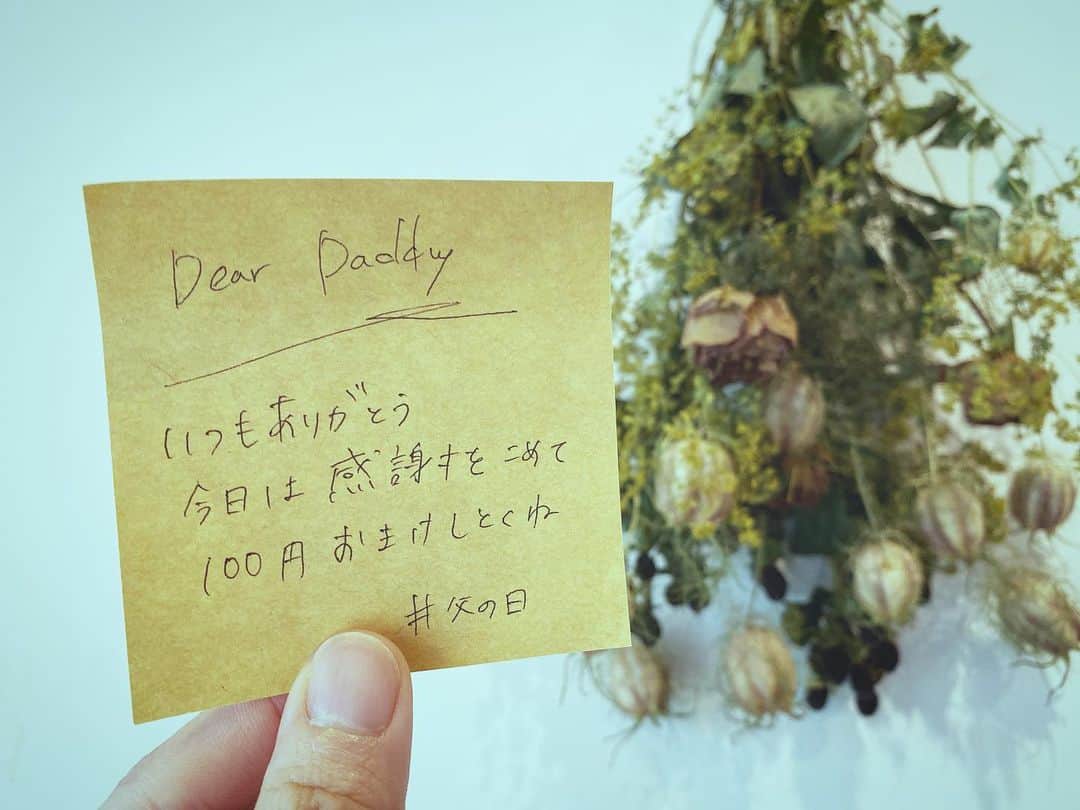 Dear Daddy
いつもありがとう
今日は感謝すをこめて
100円おまけしとくね
#父の日